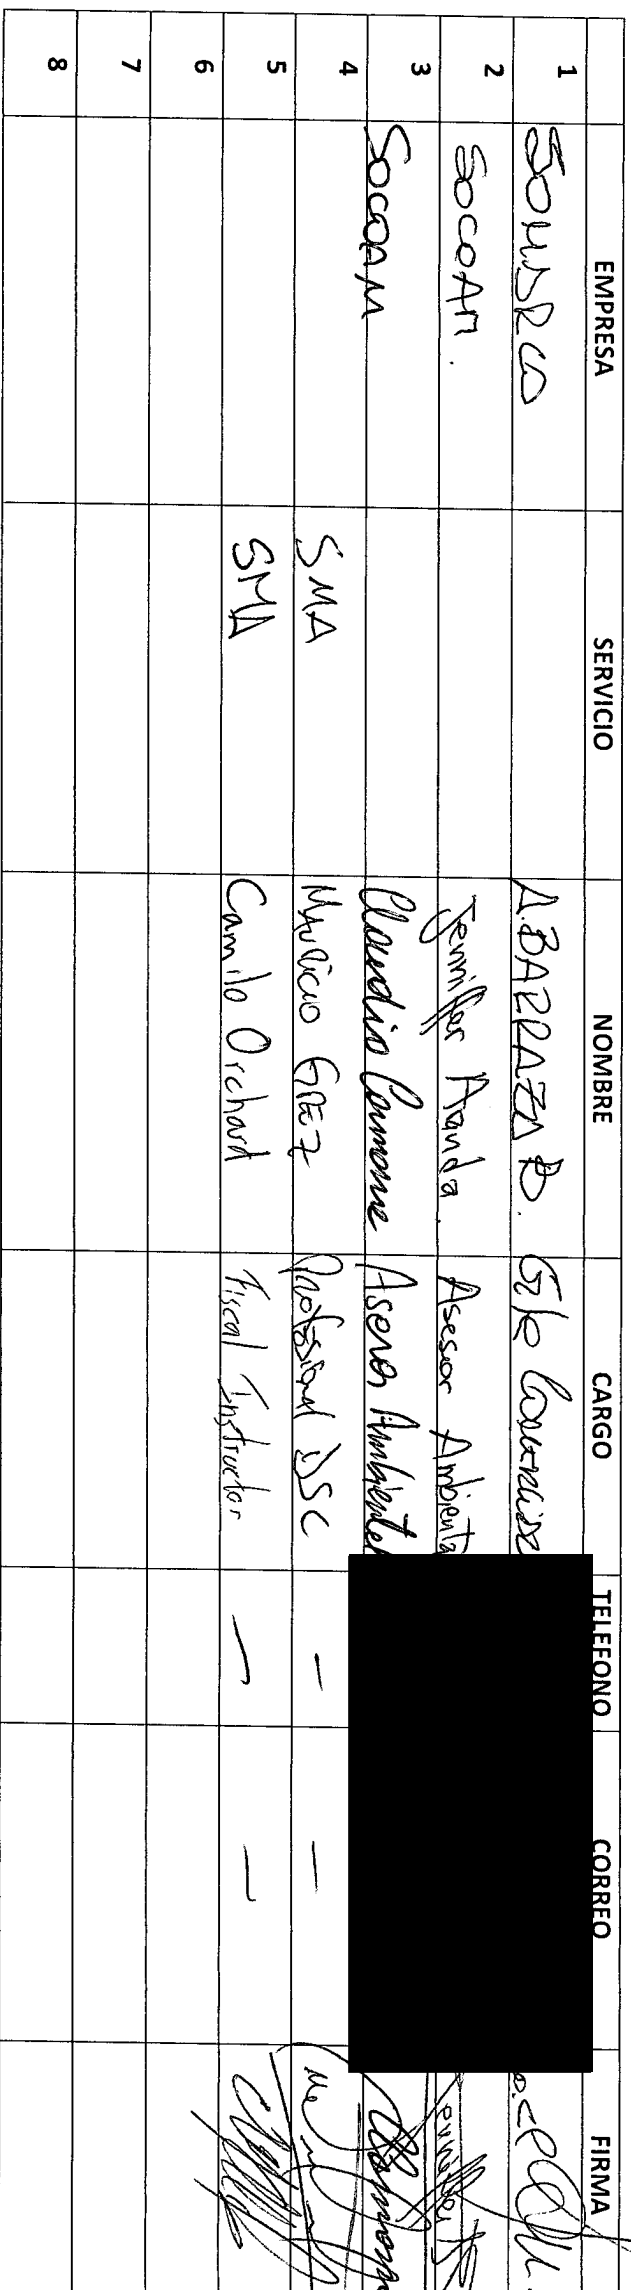 EMPRESA SERVICIO NOMBRE CARGO TELEFONO CORREO FIRMA
1 A. BARRAZA B. Gte
2 SOCOAM. Jennifer Aranda. Asesor Ambienta
3 SOCOAM Claudia Asesor Ambiental
4 SMA Mauricio GREZ Profesional DSC — —
5 SMA Camilo Orchard Fiscal Instructor — —
6
7
8